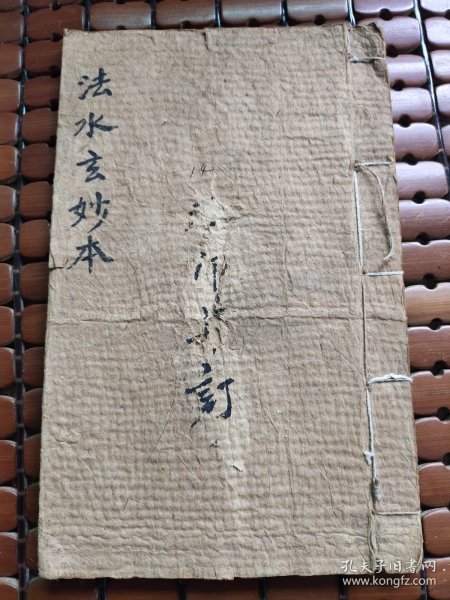 法水玄妙本
14
訂
孔夫子旧书网
www.kongfz.com